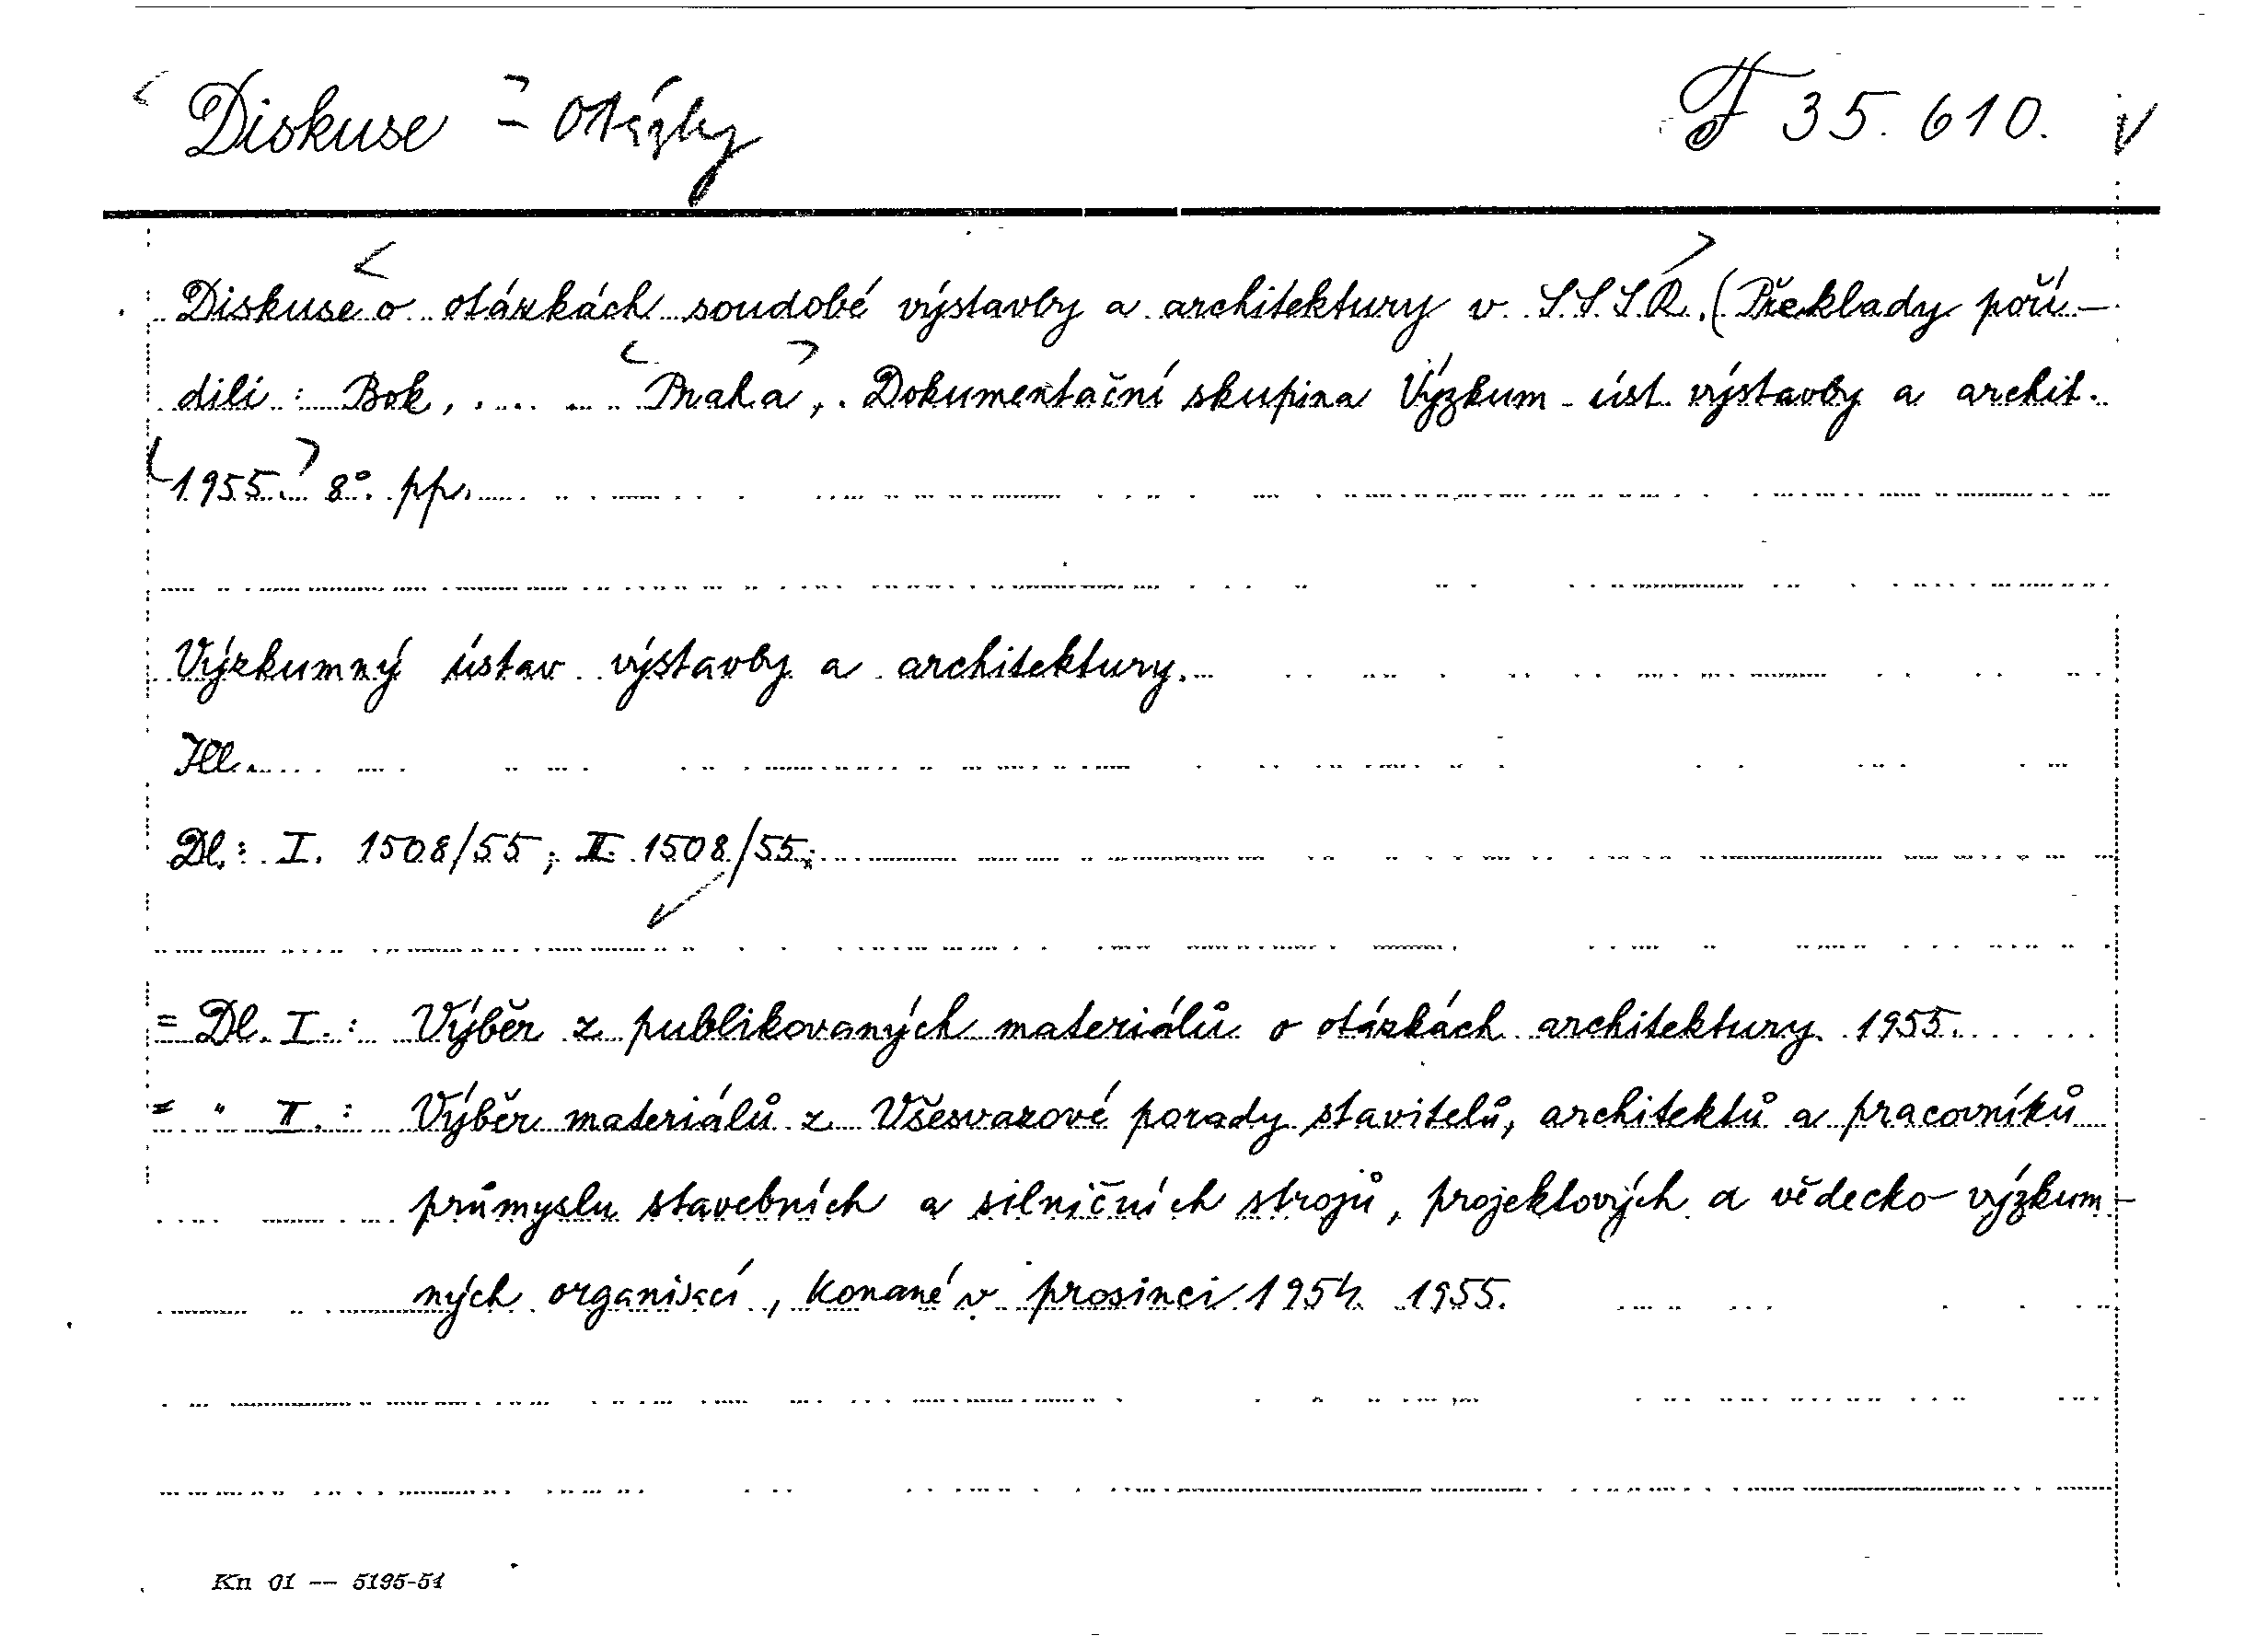 Diskuse - otázky F 35.610.
Diskuse o otázkách soudobé výstavby a architektury v S.S.S.R. (Překlady poří-
dili: Bok, ... Praha, Dokumentační skupina Výzkum. úst. výstavby a archit.
1955. 8°. pp.
Výzkumný ústav výstavby a architektury.
Ill.
Dl.: I. 1508/55; II. 1508/55;
= Dl. I.: Výběr z publikovaných materiálů o otázkách architektury. 1955.
= " II.: Výběr materiálů z Všesvazové porady stavitelů, architektů a pracovníků
průmyslu stavebních a silničních strojů, projektových a vědecko-výzkum-
ných organisací, konané v prosinci 1954. 1955.
Kn 01 — 5195-51